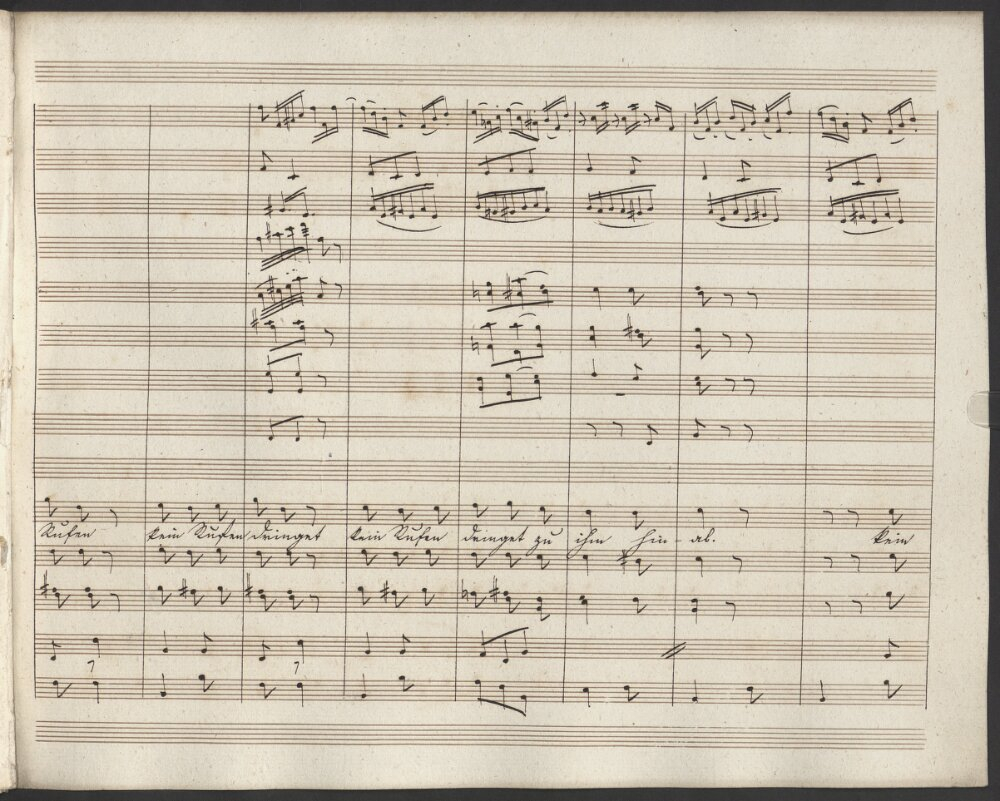 Rufen kein Rufen dringet kein Rufen dringet zu ihm hin - ab. kein